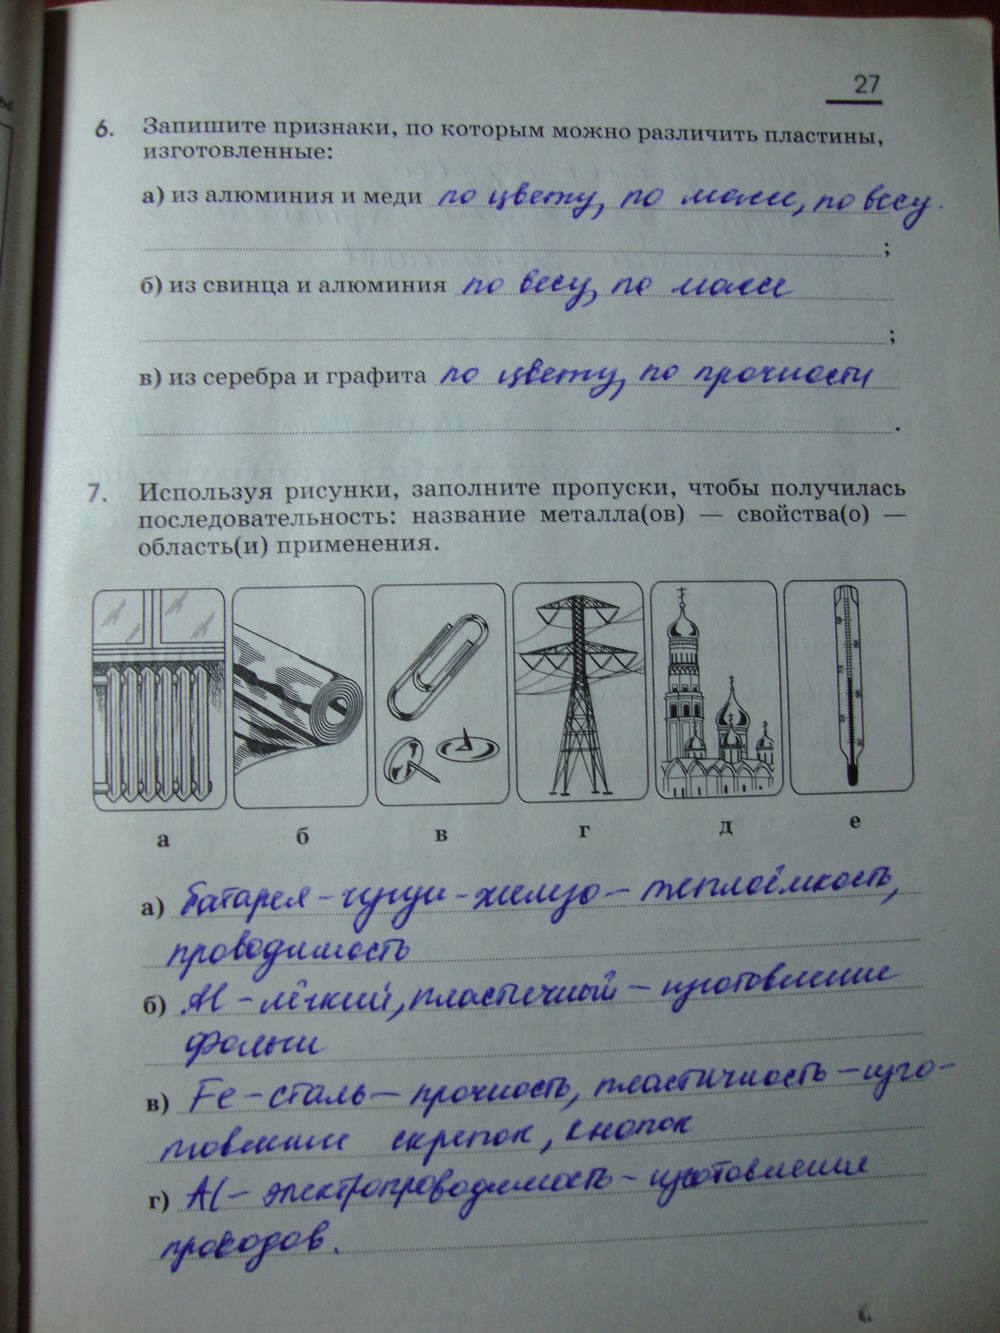 27
6. Запишите признаки, по которым можно различить пластины,
изготовленные:
а) из алюминия и меди по цвету, по массе, по весу.
;
б) из свинца и алюминия по весу, по массе
;
в) из серебра и графита по цвету, по прочности
.
7. Используя рисунки, заполните пропуски, чтобы получилась
последовательность: название металла(ов) — свойства(о) —
область(и) применения.
а б в г д е
а) Батарея – чугун – железо – теплоёмкость,
проводимость
б) Al – лёгкий, пластичный – изготовление
фольги
в) Fe – сталь – прочность, пластичность – изго-
товление скрепок, кнопок
г) Al – электропроводимость – изготовление
проводов.